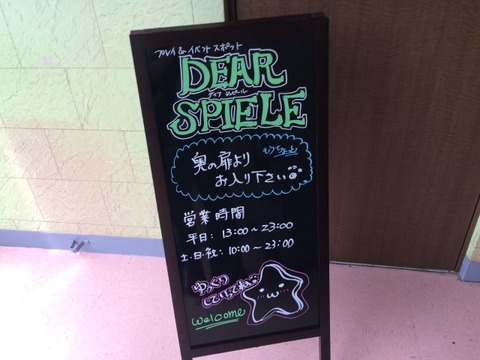 プレイ&イベント スポット
DEAR
ディア シュピール
SPIELE
もうちょっと
奥の扉より
お入り下さい
営業時間
平日:13:00~23:00
土・日・祝:10:00~23:00
ゆっくり
していってね
welcome